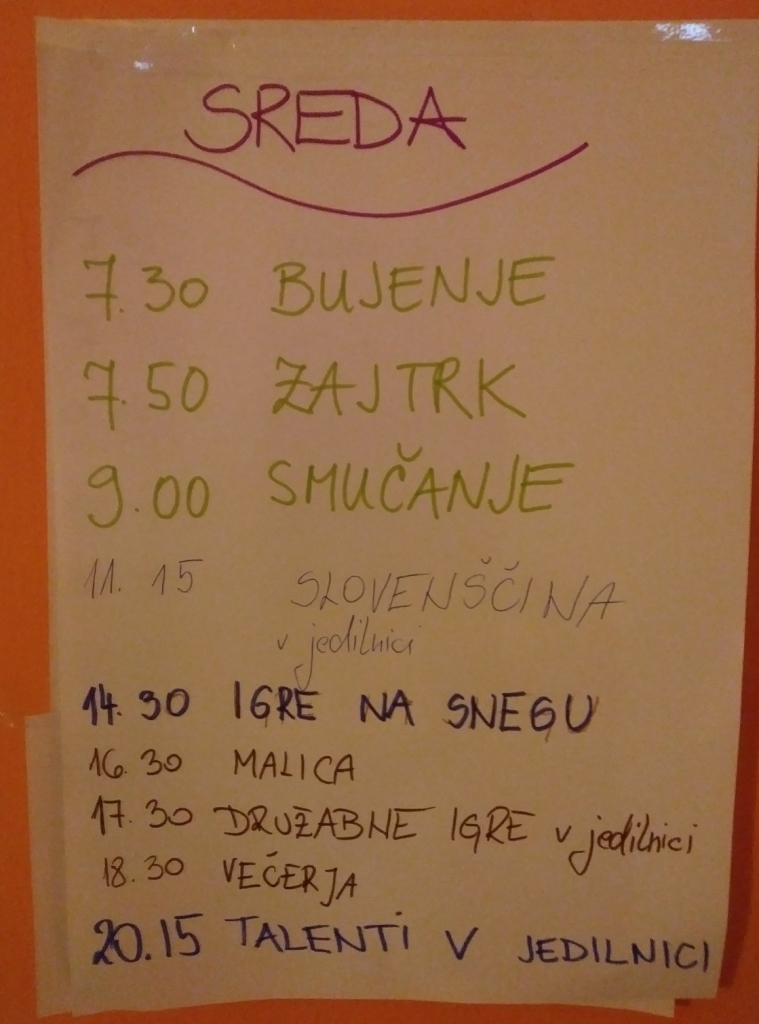 SREDA
7.30 BUJENJE
7.50 ZAJTRK
9.00 SMUČANJE
11. 15 SLOVENŠČINA
v jedilnici
14.30 IGRE NA SNEGU
16.30 MALICA
17.30 DRUŽABNE IGRE v jedilnici
18.30 VEČERJA
20.15 TALENTI V JEDILNICI